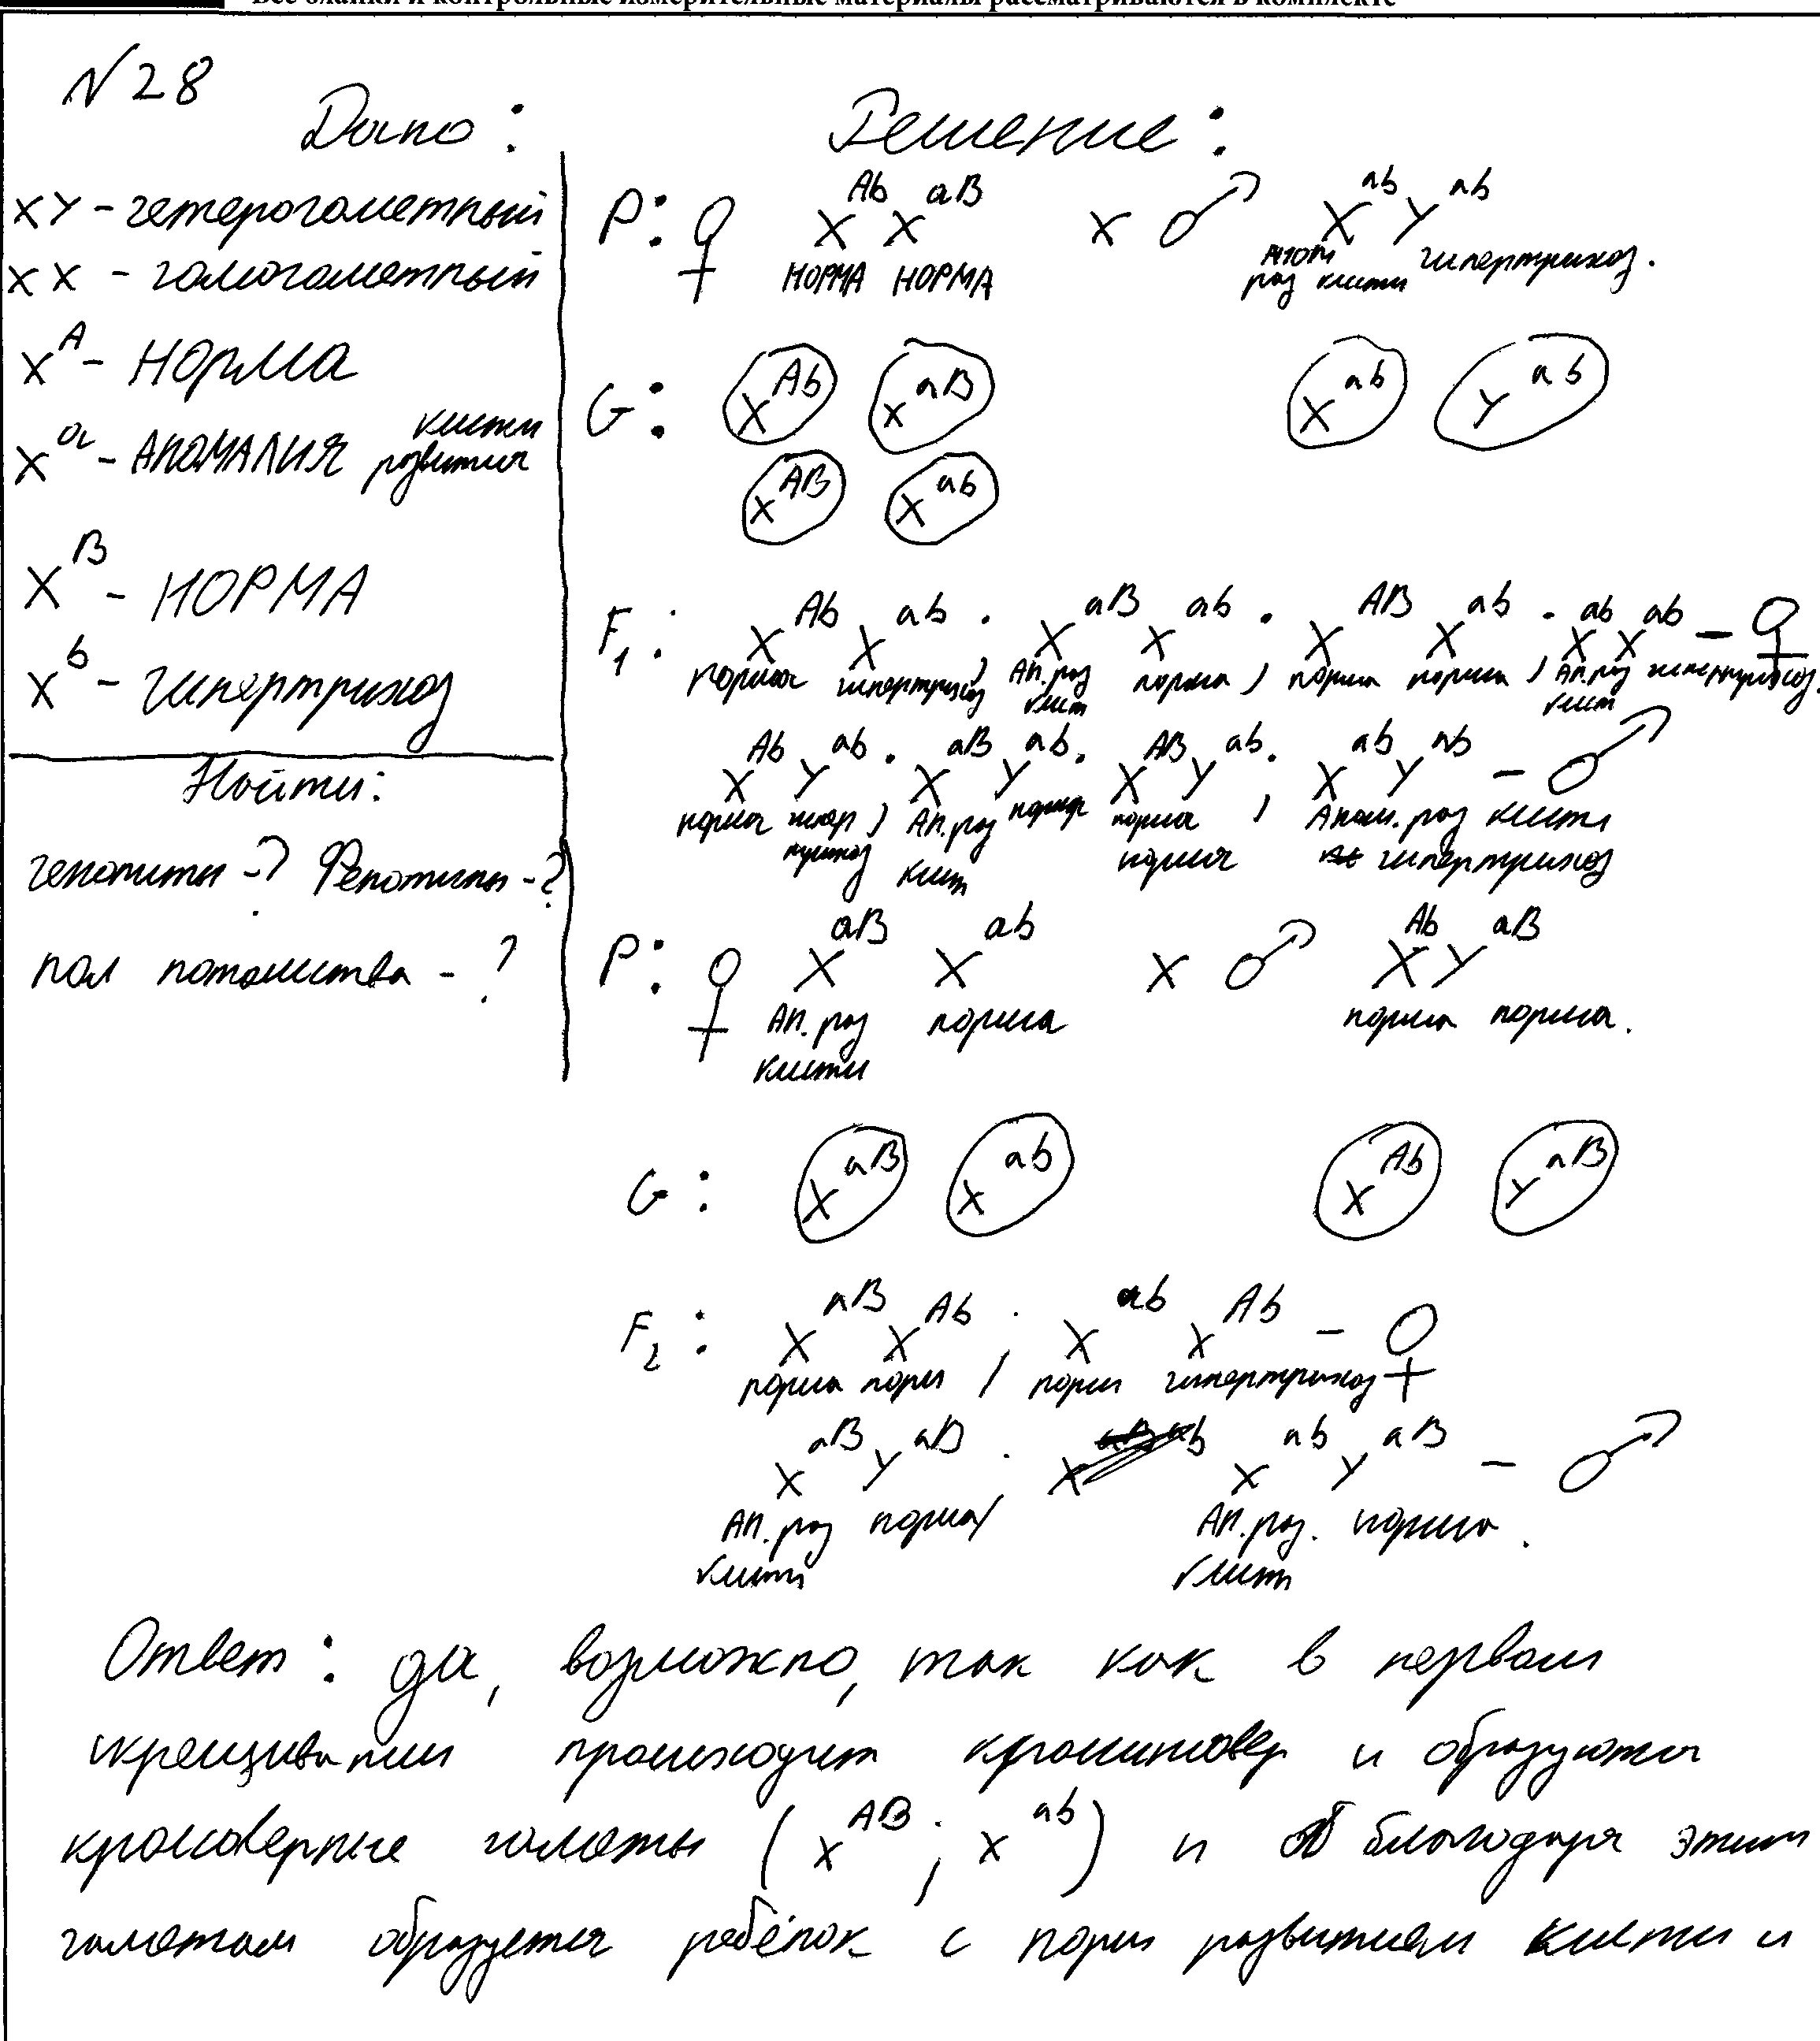 Все бланки и контрольные измерительные материалы рассматриваются в комплекте
N 28
Дано:
XY - гетерогаметный
XX - гомогаметный
X^A - НОРМА
X^a - АНОМАЛИЯ развития кисти
X^B - НОРМА
X^b - гипертрихоз
Найти:
генотипы - ? Фенотипы - ?
пол потомства - ?
Решение:
P: ♀ X^Ab X^aB x ♂ X^ab Y^ab
НОРМА НОРМА раз кисти гипертрихоз.
G: X^Ab X^aB X^ab Y^ab
X^AB X^ab
F1: X^Ab X^ab; X^aB X^ab; X^AB X^ab; X^ab X^ab - ♀
норма гипертрихоз, Ан. раз кист норма, норма норма, Ан. раз кист гипертрихоз.
X^Ab Y^ab; X^aB Y^ab; X^AB Y^ab; X^ab Y^ab - ♂
норма гипертрихоз, Ан. раз кист норма, норма норма, Аном. раз кисти гипертрихоз
P: ♀ X^aB X^ab x ♂ X^Ab Y^aB
Ан. раз кисти норма норма норма.
G: X^aB X^ab X^Ab Y^aB
F2: X^aB X^Ab; X^ab X^Ab - ♀
норма норм, норм гипертрихоз
X^aB Y^aB; X^ab Y^aB - ♂
Ан. раз кисти норма, Ан. раз. кист норма.
Ответ: да, возможно, так как в первом
скрещивании происходит кроссинговер и образуются
кроссоверные гаметы (X^AB; X^ab) и благодаря этим
гаметам образуется ребёнок с норм развитием кисти и